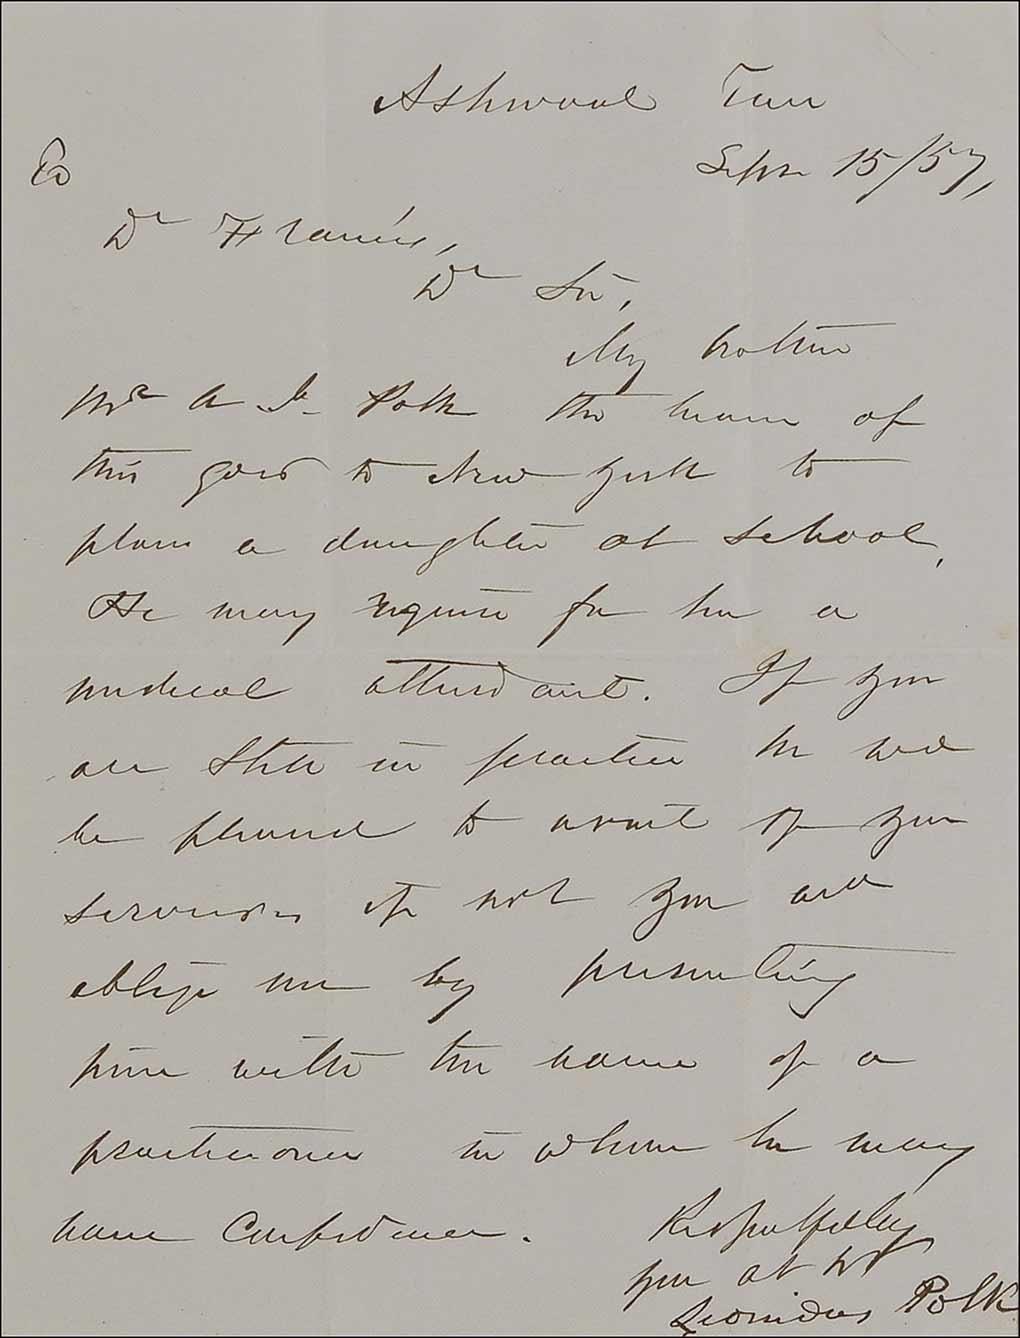 Ashwood Tenn
Sept 15/57,
To
Dr Francis,
Dr Sir,
My brother
Mr A J Polk the bearer of
this goes to New York to
place a daughter at school,
He may require for her a
medical attendant. If you
are still in practice he will
be pleased to avail of your
services if not you will
oblige me by presenting
him with the name of a
practitioner in whom he may
have confidence.
Respectfully
your ob st
Leonidas Polk